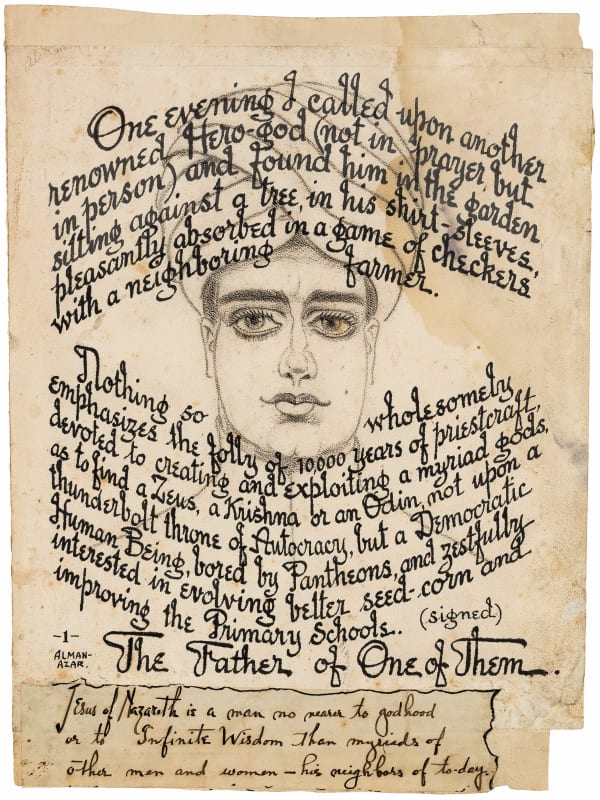 One evening I called upon another
renowned Hero-god (not in prayer, but
in person) and found him in the garden
sitting against a tree, in his shirt-sleeves,
pleasantly absorbed in a game of checkers
with a neighboring farmer.
Nothing so wholesomely
emphasizes the folly of 10,000 years of priestcraft,
devoted to creating and exploiting a myriad gods,
as to find a Zeus, a Krishna or an Odin, not upon a
thunderbolt throne of Autocracy, but a Democratic
Human Being, bored by Pantheons, and zestfully
interested in evolving better seed-corn and
improving the Primary Schools..
(signed)
-1-
ALMAN-
AZAR.
The Father of One of Them.
Jesus of Nazareth is a man no nearer to godhood
or to Infinite Wisdom than myriads of
other men and women - his neighbors of to-day.